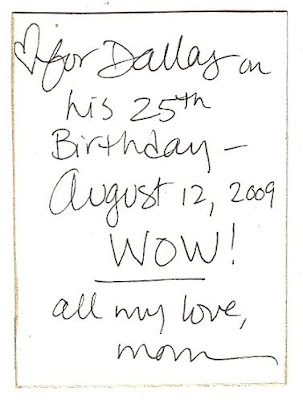 ♡ for Dallas on
his 25th
Birthday –
August 12, 2009
WOW!
all my love,
mom